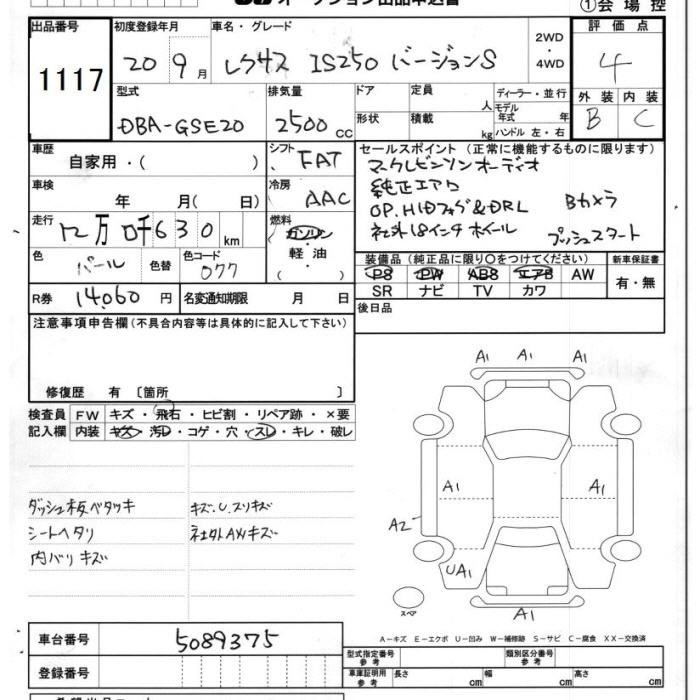 オークション出品申込書
①会場控
出品番号 初度登録年月 車名・グレード 2WD・4WD 評価点
1117 20 9月 レクサス IS250 バージョンS 4
型式 排気量 ドア 定員 人 ディーラー・並行 外装 内装
DBA-GSE20 2500cc 形状 積載 kg モデル年式 年 ハンドル 左・右 B C
車歴 自家用・( ) シフト FAT セールスポイント(正常に機能するものに限ります)
マークレビンソンオーディオ
車検 年 月( 日) 冷房 AAC 純正エアロ
OP.HIDフォグ&DRL Bカメラ
走行 12万0千630km 燃料 ガソリン・軽油・( ) 社外18インチホイール プッシュスタート
色 パール 色替 色コード 077 装備品(純正品に限り○をつけてください) 新車保証書
PS PW ABS エアB AW 有・無
SR ナビ TV カワ
R券 14,060円 名変通知期限 月 日 後日品
注意事項申告欄(不具合内容等は具体的に記入して下さい)
修復歴 有 〔箇所 〕
検査員 FW キズ・飛石・ヒビ割・リペア跡・×要
記入欄 内装 キズ・汚レ・コゲ・穴・スレ・キレ・破レ
A1 A1 A1
A1 A1
A2
UA1
A1
スペア
ダッシュ板ベタツキ キズ.U.スリキズ
シートヘタリ 社外AWキズ
内バリキズ
A-キズ E-エクボ U-凹み W-補修跡 S-サビ C-腐食 XX-交換済
車台番号 5089375
型式指定番号 参考 類別区分番号 参考
登録番号 車庫証明用 参考 長さ cm 幅 cm 高さ cm